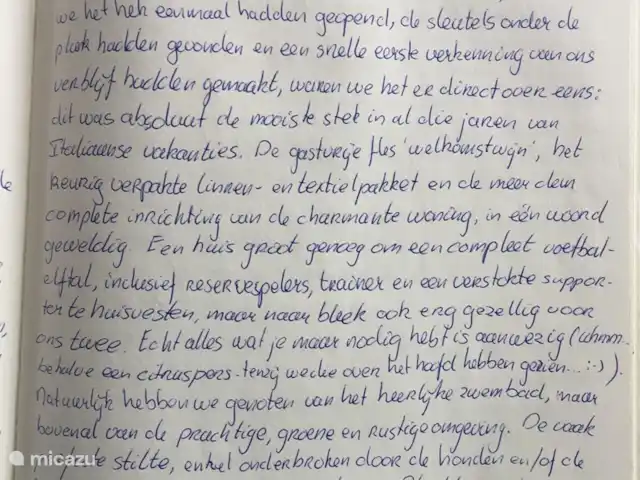 we het hek eenmaal hadden geopend, de sleutels onder de
plek hadden gevonden en een snelle eerste verkenning van ons
verblijf hadden gemaakt, waren we het er direct over eens:
dit was absoluut de mooiste stek in al die jaren van
Italiaanse vakanties. De gastvrije fles 'welkomstwijn', het
keurig verpakte linnen- en textielpakket en de meer dan
complete inrichting van de charmante woning, in één woord
geweldig. Een huis groot genoeg om een compleet voetbal-
elftal, inclusief reservespelers, trainer en een verstokte suppor-
ter te huisvesten, maar naar bleek ook erg gezellig voor
ons twee. Echt alles wat je maar nodig hebt is aanwezig (uhmm..
behalve een citruspers - tenzij we die over het hoofd hebben gezien... :-) ).
Natuurlijk hebben we genoten van het heerlijke zwembad, maar
bovenal van de prachtige, groene en rustige omgeving. De vaak
stilte, enkel onderbroken door de honden en/of de
micazu